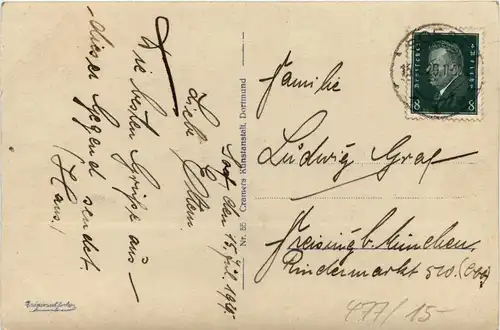 Soest, den 15. Juli 1929.
Liebe Eltern
Die besten Grüße aus
dieser Gegend sendet
Hans.
Nr. 55 Cramers Kunstanstalt, Dortmund
Familie
Ludwig Graf
Freising b. München,
Rindermarkt
Deutsches Reich
8 8
477/15-